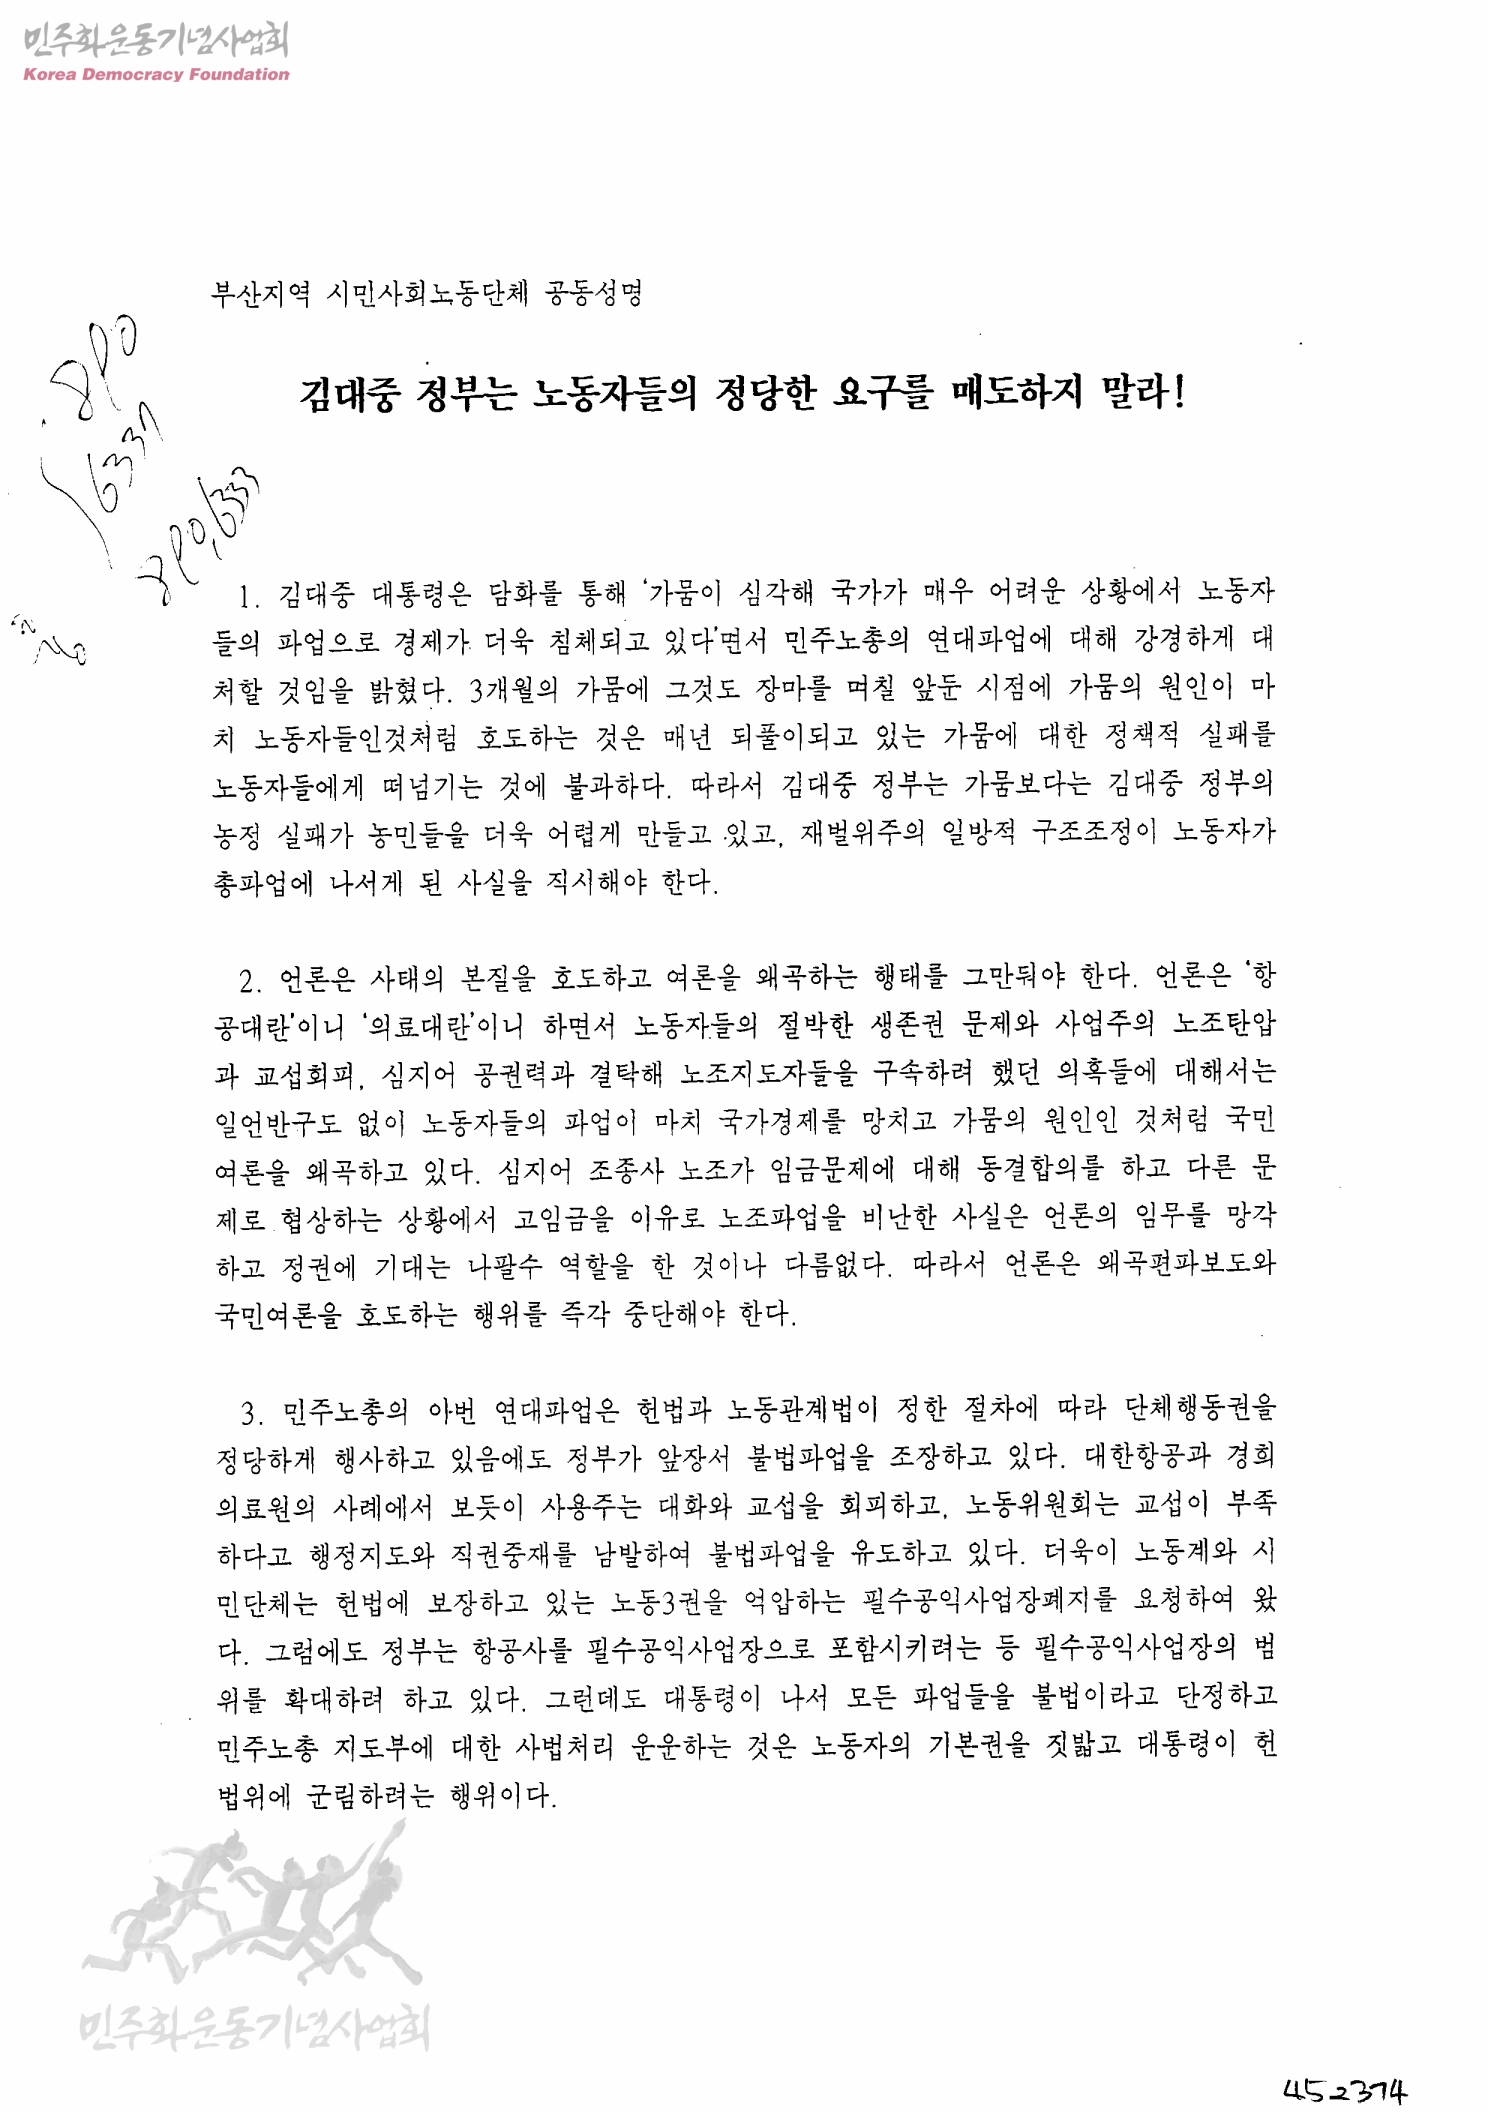 민주화운동기념사업회
Korea Democracy Foundation
부산지역 시민사회노동단체 공동성명
김대중 정부는 노동자들의 정당한 요구를 매도하지 말라!
1. 김대중 대통령은 담화를 통해 '가뭄이 심각해 국가가 매우 어려운 상황에서 노동자
들의 파업으로 경제가 더욱 침체되고 있다'면서 민주노총의 연대파업에 대해 강경하게 대
처할 것임을 밝혔다. 3개월의 가뭄에 그것도 장마를 며칠 앞둔 시점에 가뭄의 원인이 마
치 노동자들인것처럼 호도하는 것은 매년 되풀이되고 있는 가뭄에 대한 정책적 실패를
노동자들에게 떠넘기는 것에 불과하다. 따라서 김대중 정부는 가뭄보다는 김대중 정부의
농정 실패가 농민들을 더욱 어렵게 만들고 있고, 재벌위주의 일방적 구조조정이 노동자가
총파업에 나서게 된 사실을 직시해야 한다.
2. 언론은 사태의 본질을 호도하고 여론을 왜곡하는 행태를 그만둬야 한다. 언론은 '항
공대란'이니 '의료대란'이니 하면서 노동자들의 절박한 생존권 문제와 사업주의 노조탄압
과 교섭회피, 심지어 공권력과 결탁해 노조지도자들을 구속하려 했던 의혹들에 대해서는
일언반구도 없이 노동자들의 파업이 마치 국가경제를 망치고 가뭄의 원인인 것처럼 국민
여론을 왜곡하고 있다. 심지어 조종사 노조가 임금문제에 대해 동결합의를 하고 다른 문
제로 협상하는 상황에서 고임금을 이유로 노조파업을 비난한 사실은 언론의 임무를 망각
하고 정권에 기대는 나팔수 역할을 한 것이나 다름없다. 따라서 언론은 왜곡편파보도와
국민여론을 호도하는 행위를 즉각 중단해야 한다.
3. 민주노총의 아번 연대파업은 헌법과 노동관계법이 정한 절차에 따라 단체행동권을
정당하게 행사하고 있음에도 정부가 앞장서 불법파업을 조장하고 있다. 대한항공과 경희
의료원의 사례에서 보듯이 사용주는 대화와 교섭을 회피하고, 노동위원회는 교섭이 부족
하다고 행정지도와 직권중재를 남발하여 불법파업을 유도하고 있다. 더욱이 노동계와 시
민단체는 헌법에 보장하고 있는 노동3권을 억압하는 필수공익사업장폐지를 요청하여 왔
다. 그럼에도 정부는 항공사를 필수공익사업장으로 포함시키려는 등 필수공익사업장의 범
위를 확대하려 하고 있다. 그런데도 대통령이 나서 모든 파업들을 불법이라고 단정하고
민주노총 지도부에 대한 사법처리 운운하는 것은 노동자의 기본권을 짓밟고 대통령이 헌
법위에 군림하려는 행위이다.
민주화운동기념사업회
452374